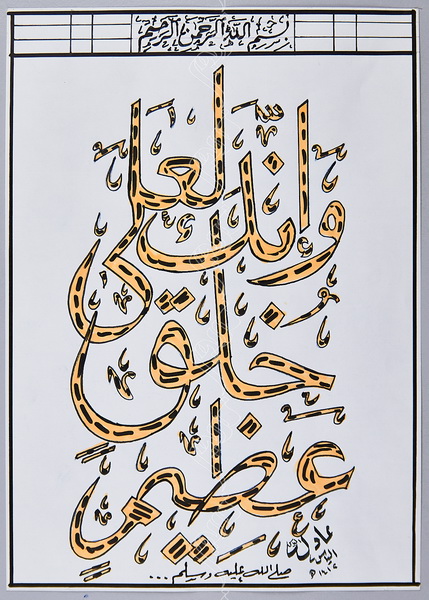 بسم الله الرحمن الرحيم
وَإِنَّكَ لَعَلى
خُلُقٍ
عَظِيمٍ
عادل
صلى الله عليه وسلم ...